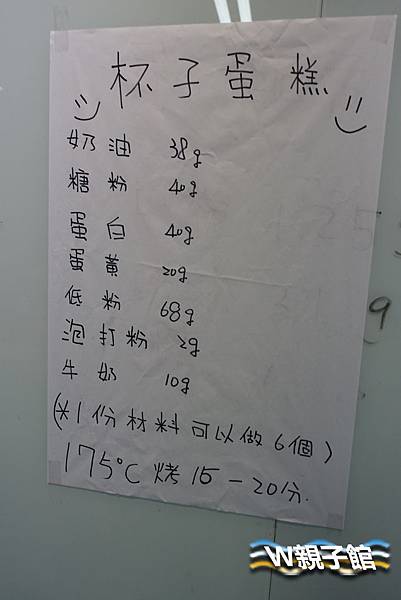 杯子蛋糕
奶油 38g
糖粉 40g
蛋白 40g
蛋黃 20g
低粉 68g
泡打粉 2g
牛奶 10g
(*1份材料可以做6個)
175°C 烤 15-20分.
W親子館